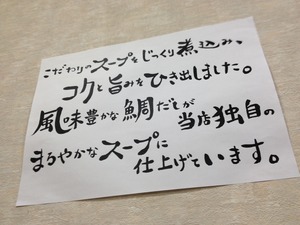 こだわりのスープをじっくり煮込み、
コクと旨みをひき出しました。
風味豊かな鯛だしが当店独自の
まろやかなスープに仕上げています。